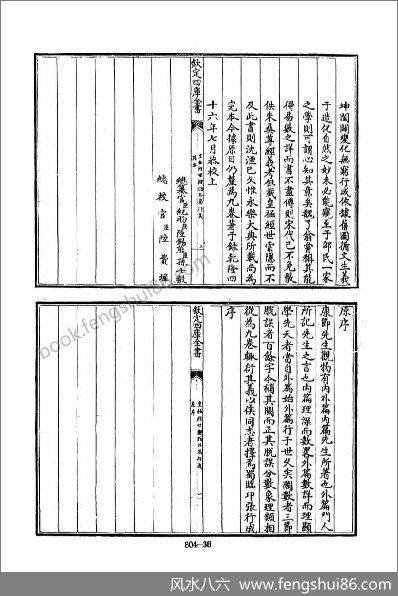 坤闔闢變化無窮行成依據舊圖循文生義
于造化自然之妙未必能窺至于邵氏一家
之學則可謂心知其意矣魏了翁嘗稱其能
得易數之詳而書不盡傳則宋代已不免散
佚朱彝尊經義考但載皇極經世索隱而不
及此書則沈湮已久惟永樂大典所載尚為
完本今據原目仍釐為九卷著于錄乾隆四
十六年七月恭校上
總纂官臣紀昀臣陸錫熊臣孫士毅
總校官臣陸費墀
欽定四庫全書
原序
康節先生觀物有內外篇內篇先生所著也外篇門人
所記先生之言也內篇理深而數畧外篇數詳而理顯
學先天者當自外篇始外篇行于世久矣闕數者三節
脫誤者百餘字今補其闕而正其脫誤分數象理類相
從為九卷輒衍其義以俟同志者擇焉蜀臨卭張行成
序
欽定四庫全書
皇極經世觀物外篇衍義
原序
804-38
book.fengshui86.com
风水八六 - www.fengshui86.com